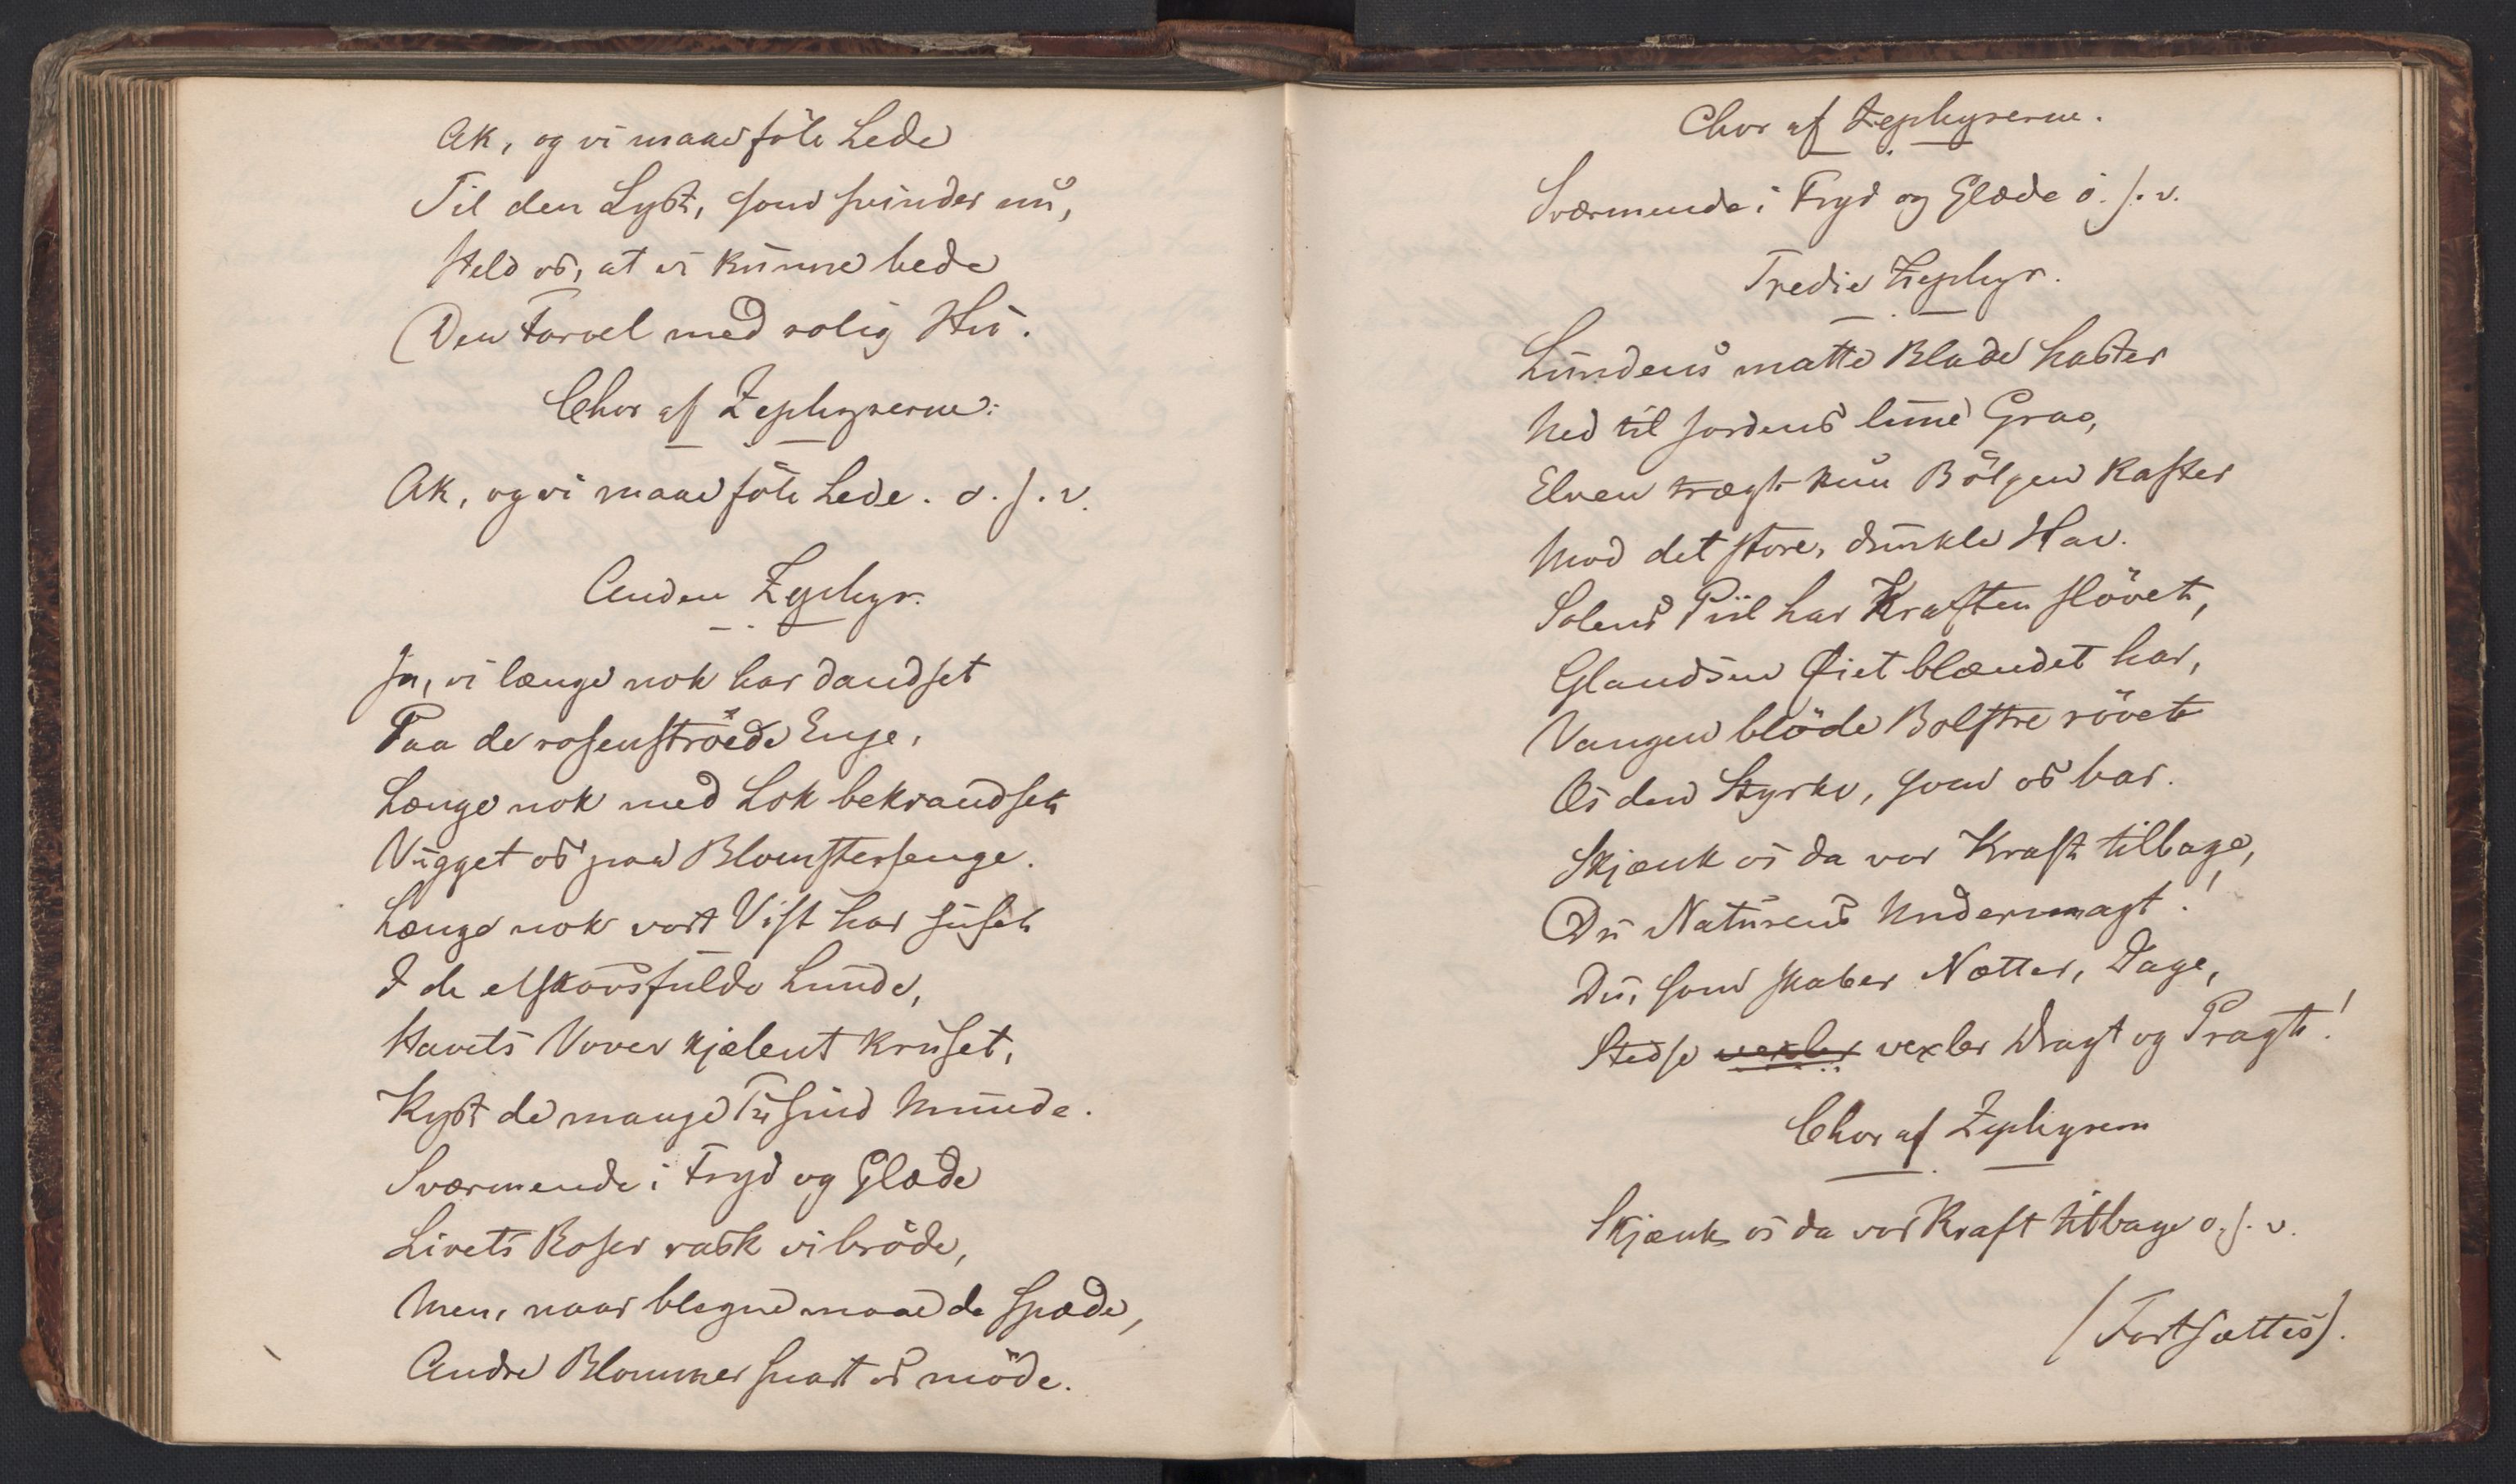 Ak, og vi maae föle Lede
Til den Lyst, som svinder nu,
Held os, at vi kunne bede
Den Farvel med rolig Hu.
Chor af Zephyrerne:
Ak, og vi maae föle Lede. o. s. v.
Anden Zephyr.
Ja, vi længe nok har dandset
Paa de rosenströede Enge,
Længe nok med Lok bekrandset
Vugget os paa Blomstersenge.
Længe nok vort Vift har suset
I de elskovsfulde Lunde,
Havets Vover kjælent kruset,
Kyst de mange Tusind Munde.
Sværmende i Fryd og Glæde
Livets Roser rask vi bröde,
Men, naar blegne maae de spæde,
Andre Blommer snart os möde.
Chor af Zephyrerne.
Sværmende i Fryd og Glæde o. s. v.
Tredie Zephyr.
Lundens matte Blade haster
Ned til Jordens lune Grav,
Elven trægt kun Bölgen kaster
Mod det store, dunkle Hav.
Solens Piil har Kraften slövet,
Glandsen Øiet blændet har,
Vangens blöde Bolstre rövet
Os den Styrke, som os bar.
Skjænk os da vor Kraft tilbage,
Du Naturens Undermagt!
Du, som skaber Nætter, Dage,
Stedse vexler vexler Dragt og Pragt!
Chor af Zephyrern
Skjænk os da vor Kraft tilbage o. s. v.
(Fortsættes).